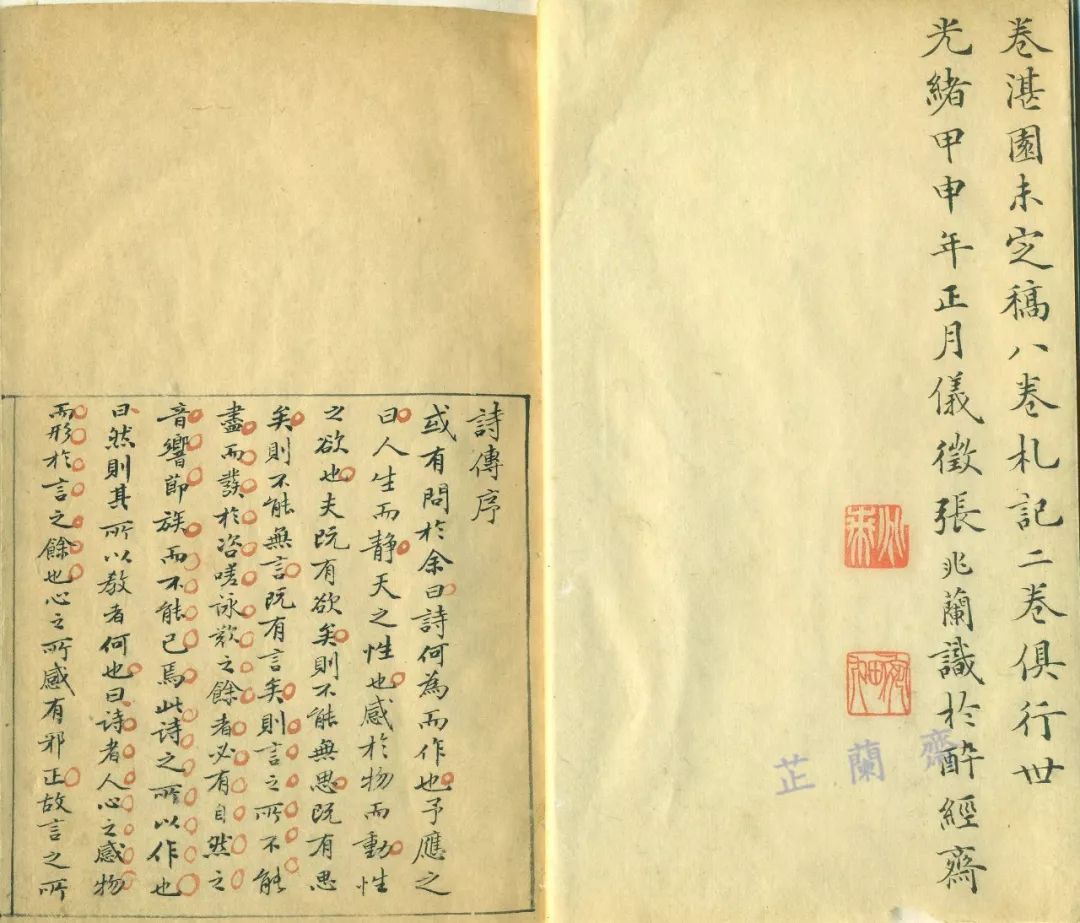 卷湛園未定稿八卷札記二卷俱行世
光緒甲申年正月儀徵張兆蘭識於醉經齋
芷蘭齋
詩傳序
或有問於余曰詩何為而作也予應之
曰人生而静天之性也感於物而動性
之欲也夫既有欲矣則不能無思既有思
矣則不能無言既有言矣則言之所不能
盡而發於咨嗟詠歎之餘者必有自然之
音響節族而不能已焉此詩之所以作也
曰然則其所以教者何也曰詩者人心之感物
而形於言之餘也心之所感有邪正故言之所